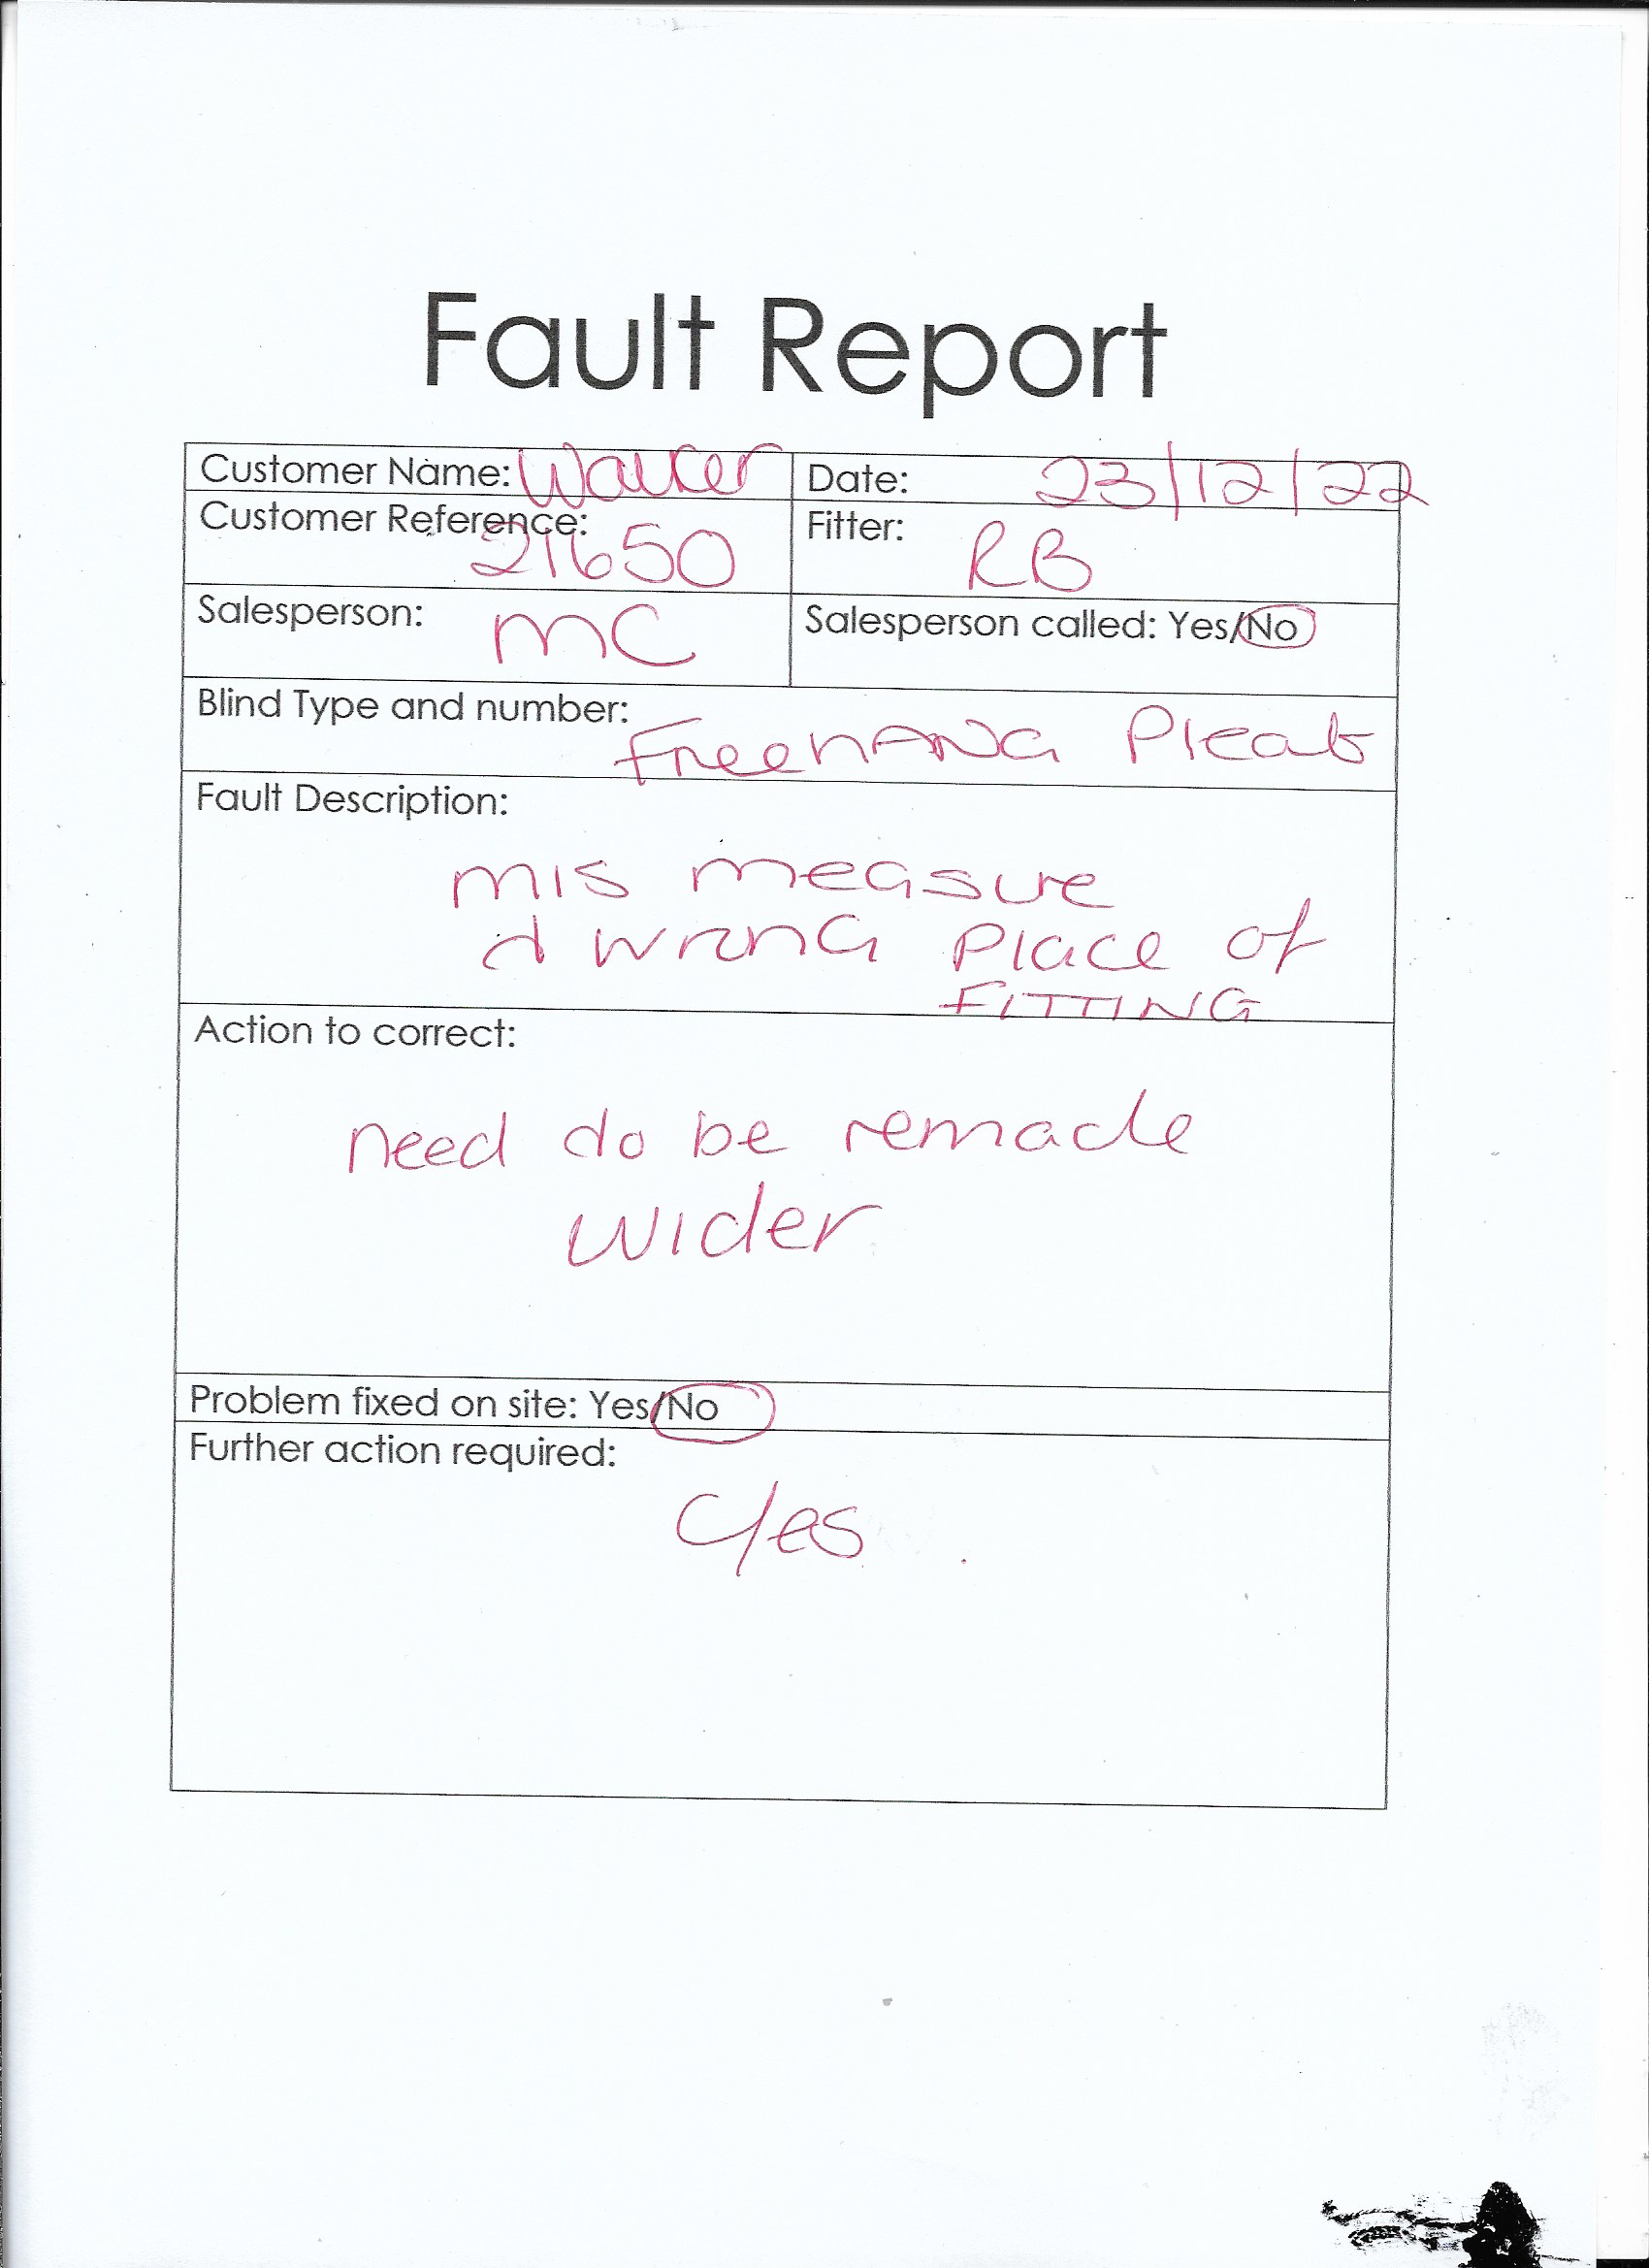 Fault Report
Customer Name: Walker
Date: 23/12/22
Customer Reference: 21650
Fitter: RB
Salesperson: MC
Salesperson called: Yes/No
Blind Type and number: FreehANG Pleat
Fault Description:
mis measure
& wrong Place of
FITTING
Action to correct:
need do be remade
wider
Problem fixed on site: Yes/No
Further action required:
Yes